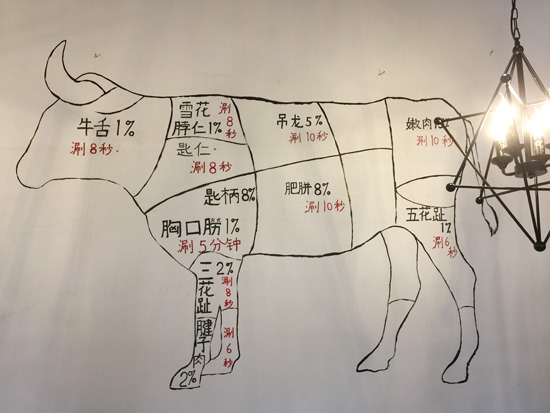 牛舌1%
涮8秒.
雪花
脖仁1%
涮8秒
匙仁
涮8秒
吊龙5%
涮10秒
嫩肉
涮10秒
匙柄8%
肥胼8%
涮10秒
胸口朥1%
涮5分钟
五花趾
1%
涮6秒
三花趾2%
涮8秒
腱子肉
2%
涮6秒